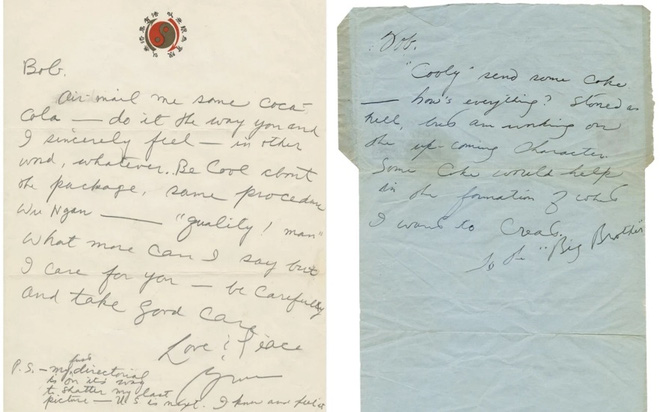 Bob.
Air mail me some Coca-
Cola — do it the way you and
I sincerely feel — in other
word, whatever.. Be Cool about
the package, same procedure
Wu Ngan — "quality! man"
what more can I say but
I care for you — be carefully
and take good care
Love & Peace
P.S. — my directorial
is on its way
to shatter my last
picture — U.S. is next. I know and feel it
Bob.
"Cooly" send some Coke
— how's everything? Stoned as
hell, but am working on
the up-coming character.
Some Cke would help
in the formation of what
I want to create.
"Big Brother"